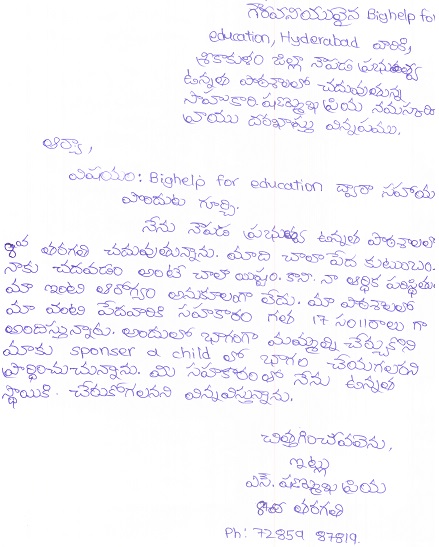 గౌరవనియులైన Bighelp for
education, Hyderabad వారికి,
శ్రీకాకుళం జిల్లా నౌపడ ప్రభుత్వ
ఉన్నత పాఠశాలలో చదువుతున్న
సాహుకారి షణ్ముఖ ప్రియ నమస్కరించి
వ్రాయు దరఖాస్తు విన్నపము.
ఆర్యా,
విషయం: Bighelp for education ద్వారా సహాయం
పొందుట గూర్చి.
నేను నౌపడ ప్రభుత్వ ఉన్నత పాఠశాలలో
8వ తరగతి చదువుతున్నాను. మాది చాలా పేద కుటుంబం.
నాకు చదవడం అంటే చాలా యిష్టం. కాని, నా ఆర్థిక పరిస్థితు
మా ఇంటి ఆరోగ్యం అనుకూలంగా లేదు. మా పాఠశాలలో
మా వంటి పేదవారికి సహకారం గత 17 సం||రాలు గా
అందిస్తున్నారు. అందులో భాగంగా మమ్మల్ని చేర్చుకొని
మాకు sponser a child లో భాగం చేయగలరని
ప్రార్థించుచున్నాను. మీ సహకారంలో నేను ఉన్నత
స్థాయికి చేరుకోగలనని విన్నవిస్తున్నాను.
చిత్తగించవలెను,
ఇట్లు
ఎస్. షణ్ముఖ ప్రియ
8వ తరగతి
Ph: 72859 87819.